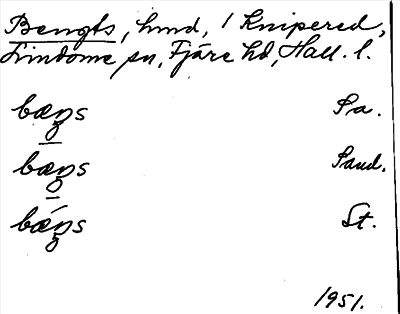 Bengts, hmd, 1 Knipered,
Lindome sn, Fjäre hd, Hall. l.
bæŋs Sa.
bæŋs Sand.
bæ´ŋs St.
1951.